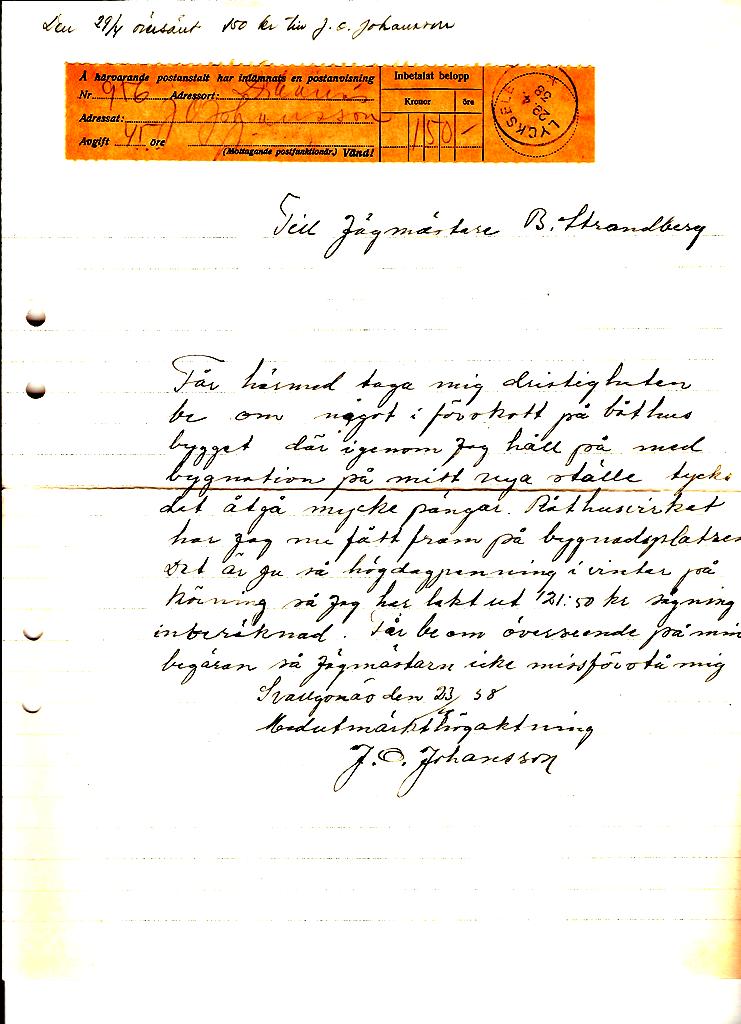 Den 29/4 översänt 150 kr till J. O. Johansson
Å härvarande postanstalt har inlämnats en postanvisning
Nr 956 Adressort:
Adressat: J O Johansson
Avgift 45 öre
(Mottagande postfunktionär.) Vänd!
Inbetalat belopp
Kronor öre
150 -
LYCKSELE
29 4 38
Till Jägmästare B. Strandberg
Får härmed taga mig dristigheten
be om något i förskott på båthus
bygget där igenom Jag håll på med
bygnation på mitt nya ställe tycks
det åtgå mycke pängar. Båthusvirket
har Jag nu fått fram på bygnadsplatsen
Det är ju så högdagpenning i vinter på
körning så Jag har lakt ut 121:50 kr sågning
inberäknad. Får be om överseende på min
begäran så Jägmästarn icke missförstå mig
den 23/4 38
Med utmärkt högaktning
J. O. Johansson